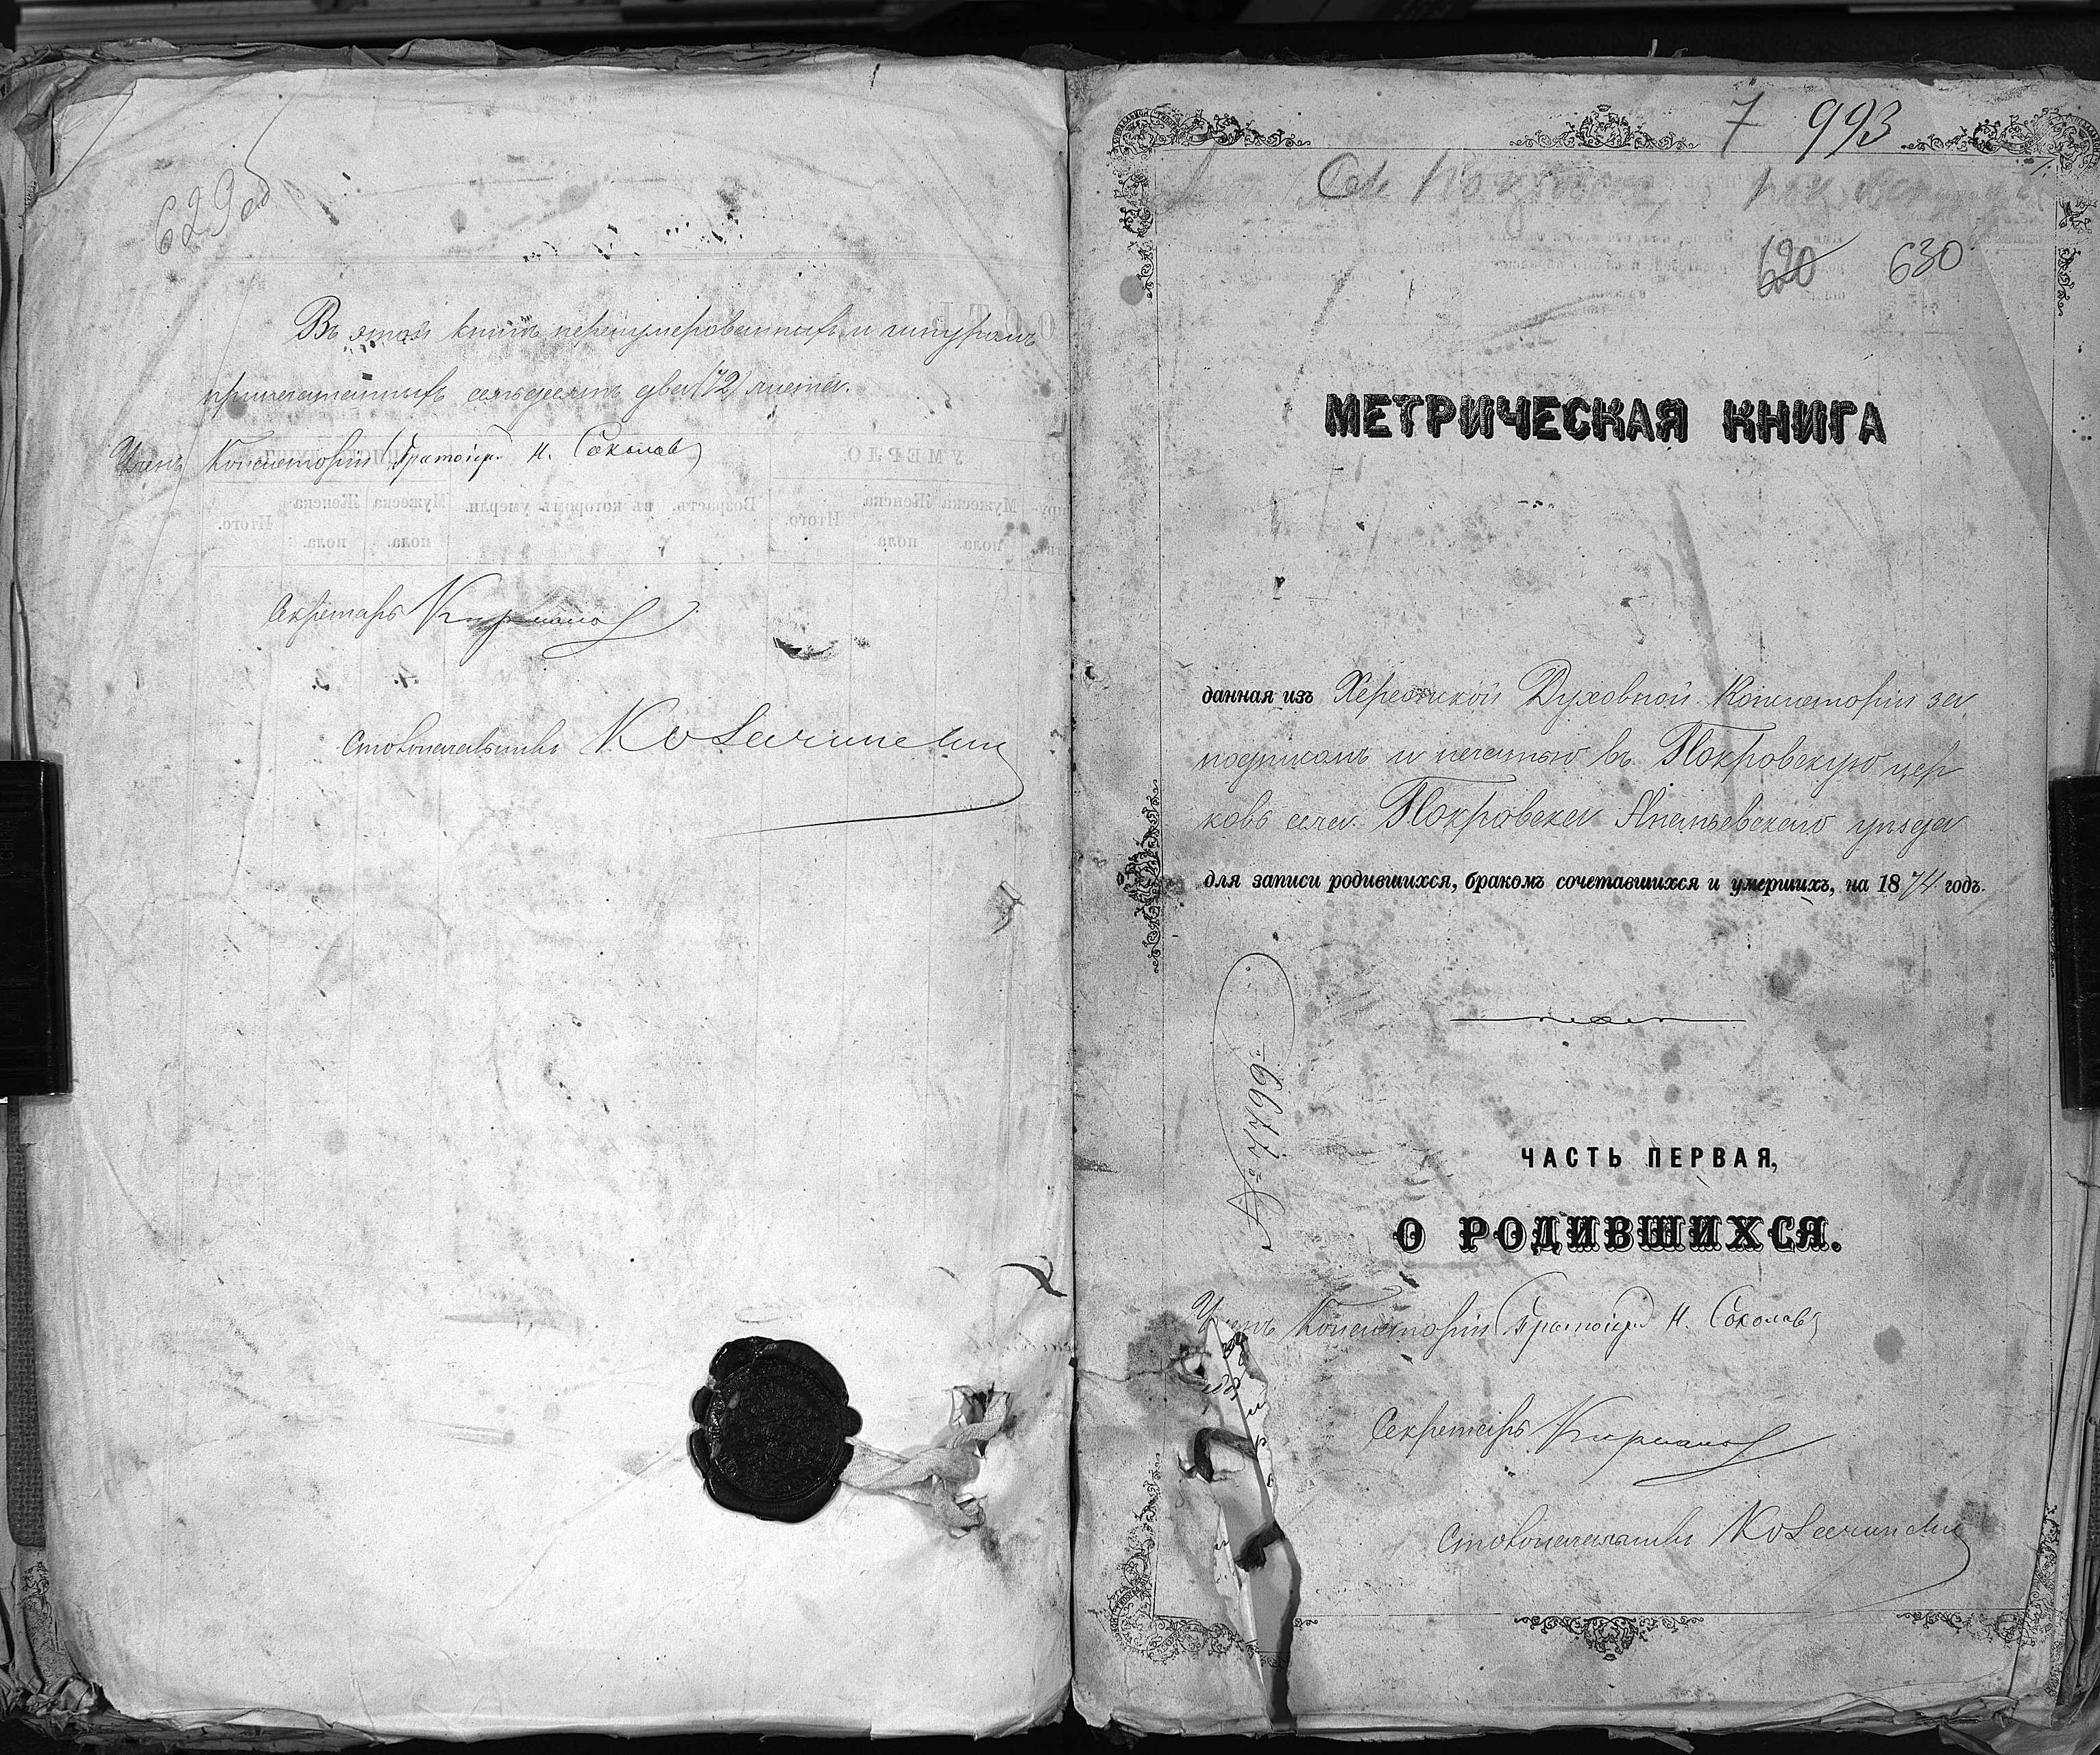 629 об
Въ этой книгѣ перенумерованныхъ и шнуромъ
припечатанныхъ семьдесятъ два (72) листа.
Членъ Консисторіи Протоіер. Н. Соколовъ
Секретарь
Столоначальникъ
7 993
Покровка
620 630
МЕТРИЧЕСКАЯ КНИГА
данная изъ Херсонской Духовной Консисторіи за
подписомъ и печатью въ Покровскую цер
ковь села Покровска Ананьевскаго уѣзда
для записи родившихся, бракомъ сочетавшихся и умершихъ, на 1874 годъ.
№ 7799
ЧАСТЬ ПЕРВАЯ,
О РОДИВШИХСЯ.
Членъ Консисторіи Протоіер. Н. Соколовъ
Секретарь
Столоначальникъ